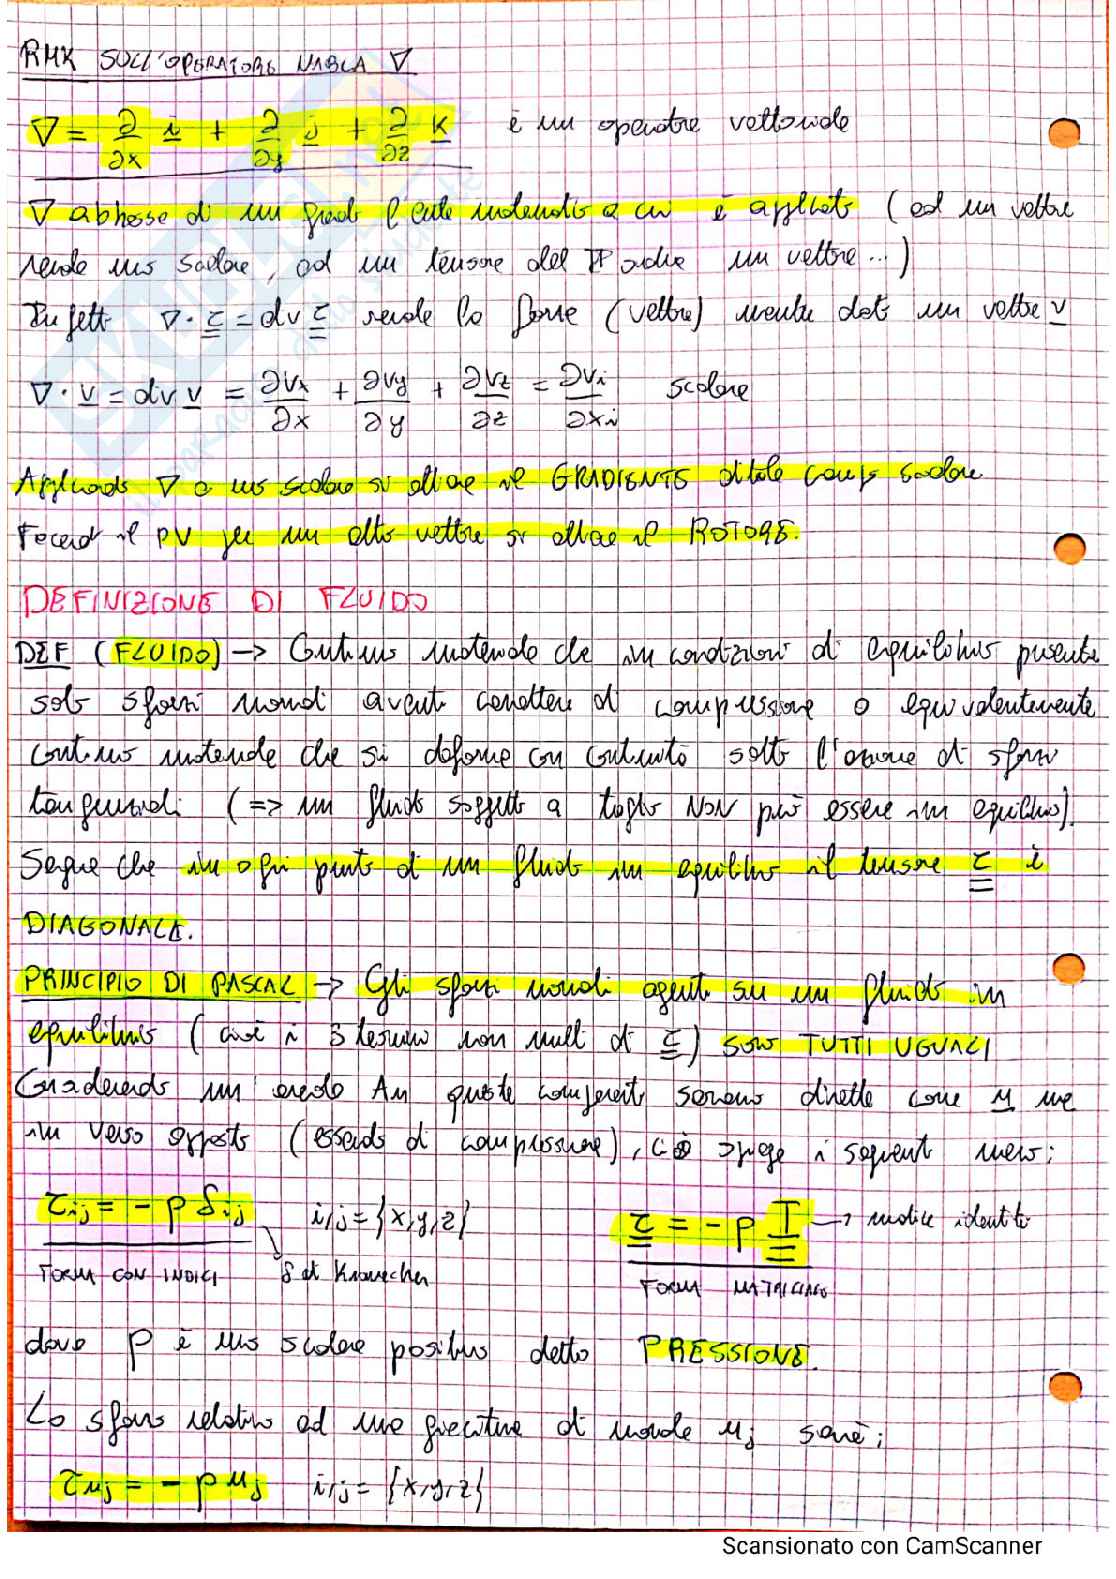 RMK SULL'OPERATORE NABLA ∇
∇ = ∂/∂x i + ∂/∂y j + ∂/∂z k è un operatore vettoriale
∇ abbassa di un grado l'ente matematico a cui è applicato (ad un vettore
rende uno scalare, ad un tensore del II ordine un vettore...)
Infatti ∇·τ = div τ rende la forza (vettore) mentre dato un vettore v
∇·v = div v = ∂vx/∂x + ∂vy/∂y + ∂vz/∂z = ∂vi/∂xi scalare
Applicando ∇ a uno scalare si ottiene il GRADIENTE di tale campo scalare
Facendo il PV per un altro vettore si ottiene il ROTORE.
DEFINIZIONE DI FLUIDO
DEF (FLUIDO) -> Continuo materiale che in condizioni di equilibrio presenta
solo sforzi normali aventi carattere di compressione o equivalentemente
continuo materiale che si deforma con continuità sotto l'azione di sforzi
tangenziali (=> un fluido soggetto a taglio NON può essere in equilibrio).
Segue che in ogni punto di un fluido in equilibrio il tensore τ è
DIAGONALE.
PRINCIPIO DI PASCAL -> Gli sforzi normali agenti su un fluido in
equilibrio (cioè i 3 termini non nulli di τ) sono TUTTI UGUALI
Considerando un'areola An queste componenti saranno dirette come n ma
in verso opposto (essendo di compressione), ciò si spiega i seguenti meno:
τij = - p δij i,j = {x,y,z} τ = - p I -> matrice identità
FORMA CON INDICI δ di Kronecker FORMA MATRICIALE
dove p è uno scalare positivo detto PRESSIONE.
Lo sforzo relativo ad una giacitura di normale nj sarà:
τnj = - p nj i,j = {x,y,z}
Scansionato con CamScanner